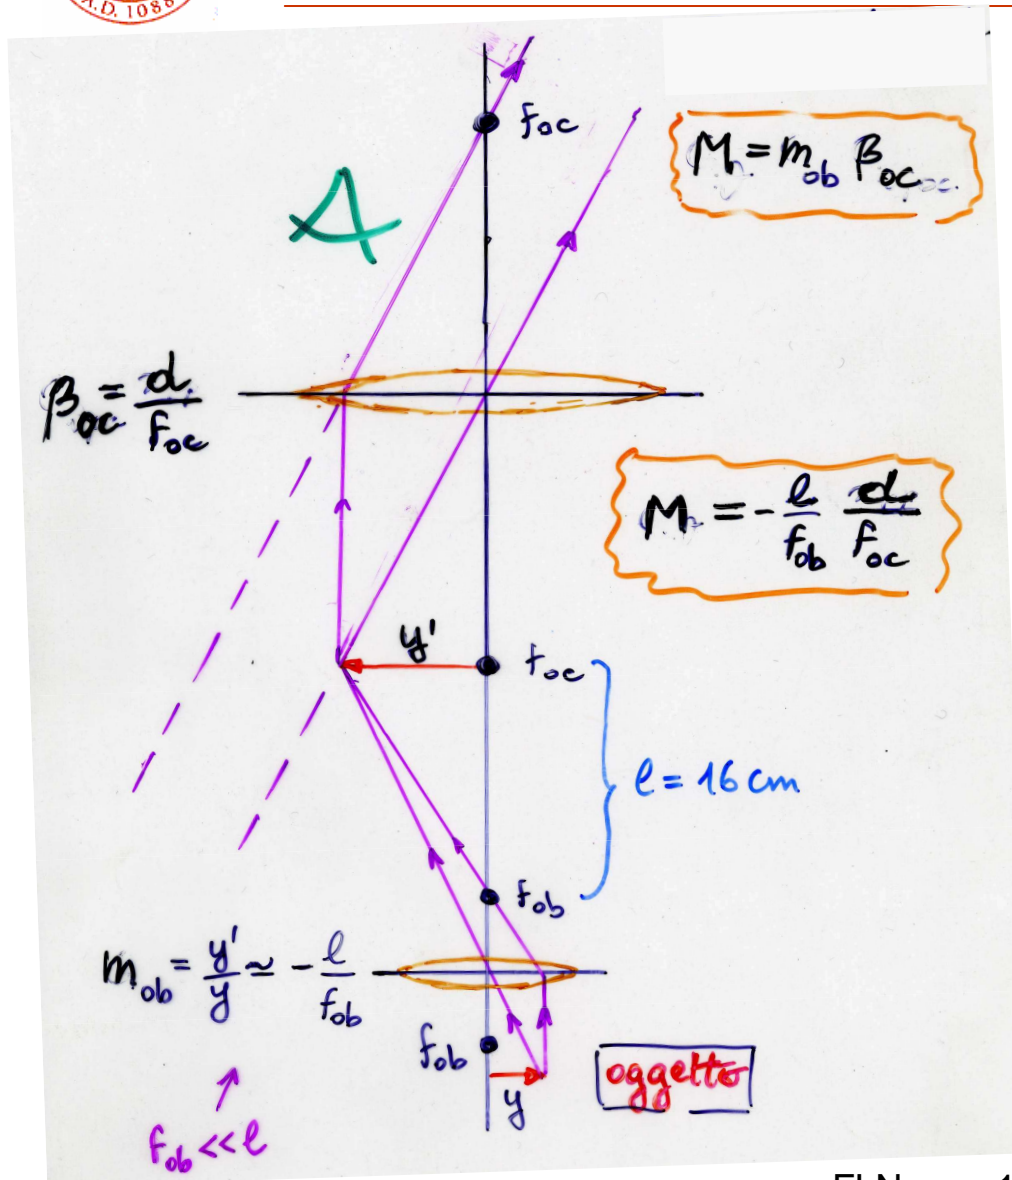 A.D. 1088
f_oc
M = m_ob β_oc
β_oc = d/f_oc
M = - l/f_ob d/f_oc
y'
f_oc
l = 16 cm
f_ob
m_ob = y'/y ≃ - l/f_ob
f_ob
oggetto
y
f_ob << l